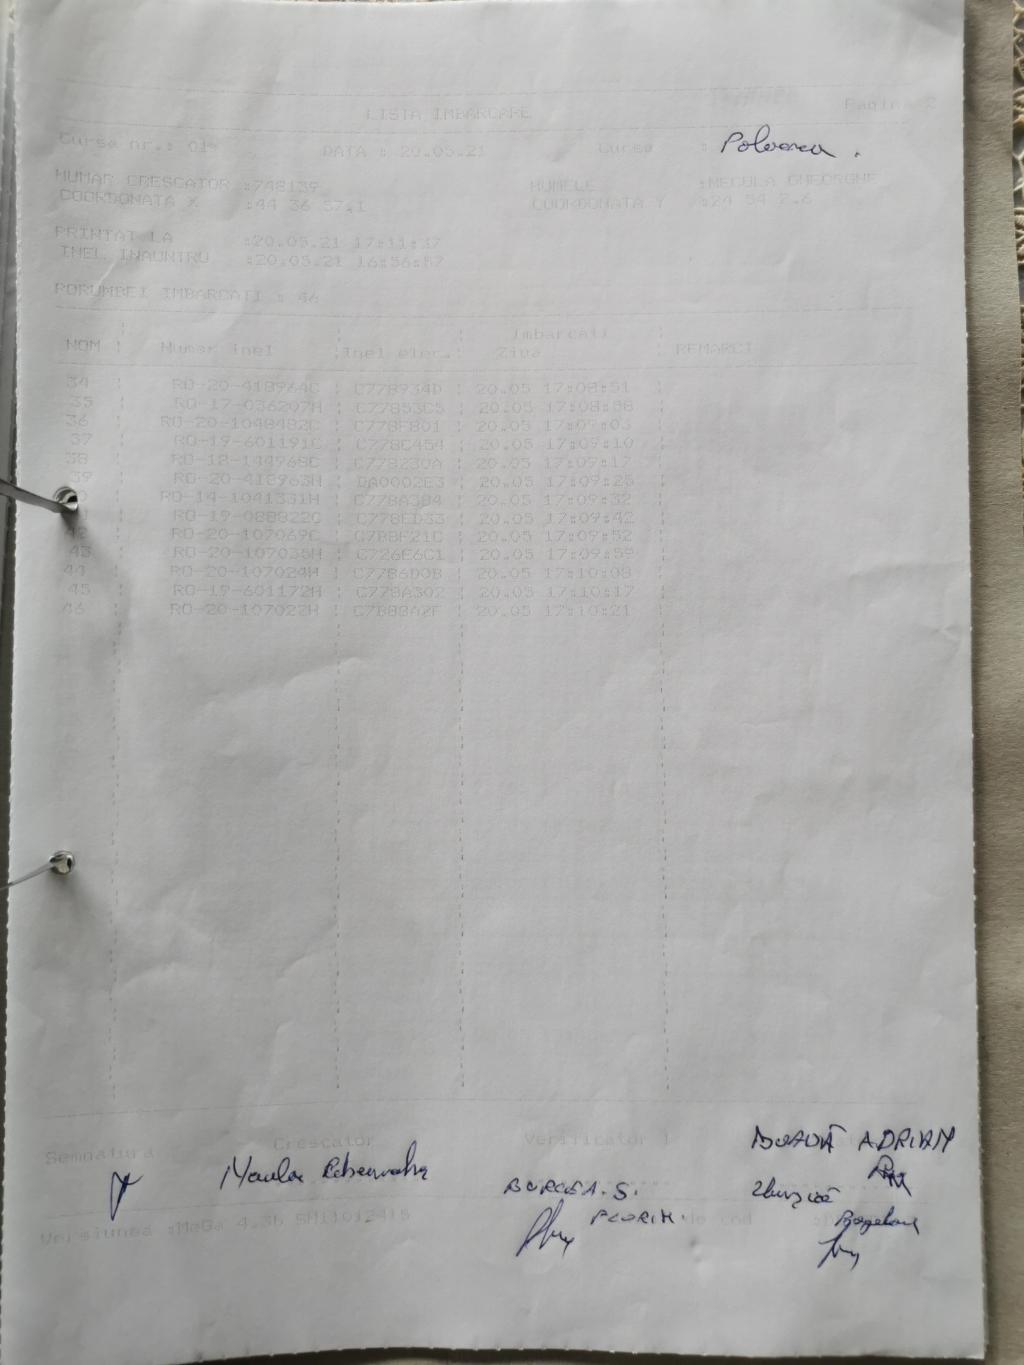 LISTA IMBARCARE Pagina 2
Cursa nr.: 01 DATA : 20.05.21 Cursa :
NUMAR CRESCATOR :748139 NUMELE :NEGULA GHEORGHE
COORDONATA X :44 36 57,1 COORDONATA Y :24 54 2.6
PRINTAT LA :20.05.21 17:11:37
INEL INAUNTRU :20.05.21 16:56:57
PORUMBEI IMBARCATI : 46
Imbarcati
NOM Numar inel Inel elec. Ziua REMARCI
34 RO-20-418964C C778934D 20.05 17:08:51
35 RO-17-036207M C77853C5 20.05 17:08:58
36 RO-20-1048482C C778F801 20.05 17:09:03
37 RO-19-601191C C778C454 20.05 17:09:10
38 RO-18-144968C C778230A 20.05 17:09:17
39 RO-20-418963M DA0002E3 20.05 17:09:25
RO-14-1041331M C778A384 20.05 17:09:32
RO-19-088822C C778ED33 20.05 17:09:42
42 RO-20-107069C C7B8F21C 20.05 17:09:52
43 RO-20-107035M C726E6C1 20.05 17:09:59
44 RO-20-107024M C7786D0B 20.05 17:10:08
45 RO-19-601172M C778A302 20.05 17:10:17
46 RO-20-107022M C7B8BA2F 20.05 17:10:21
Semnatura Crescator Verificator 1
ADRIAN
BURCEA. S.
FLORIN.
Versiunea :MeGa 4.3b SN11012415 de cod